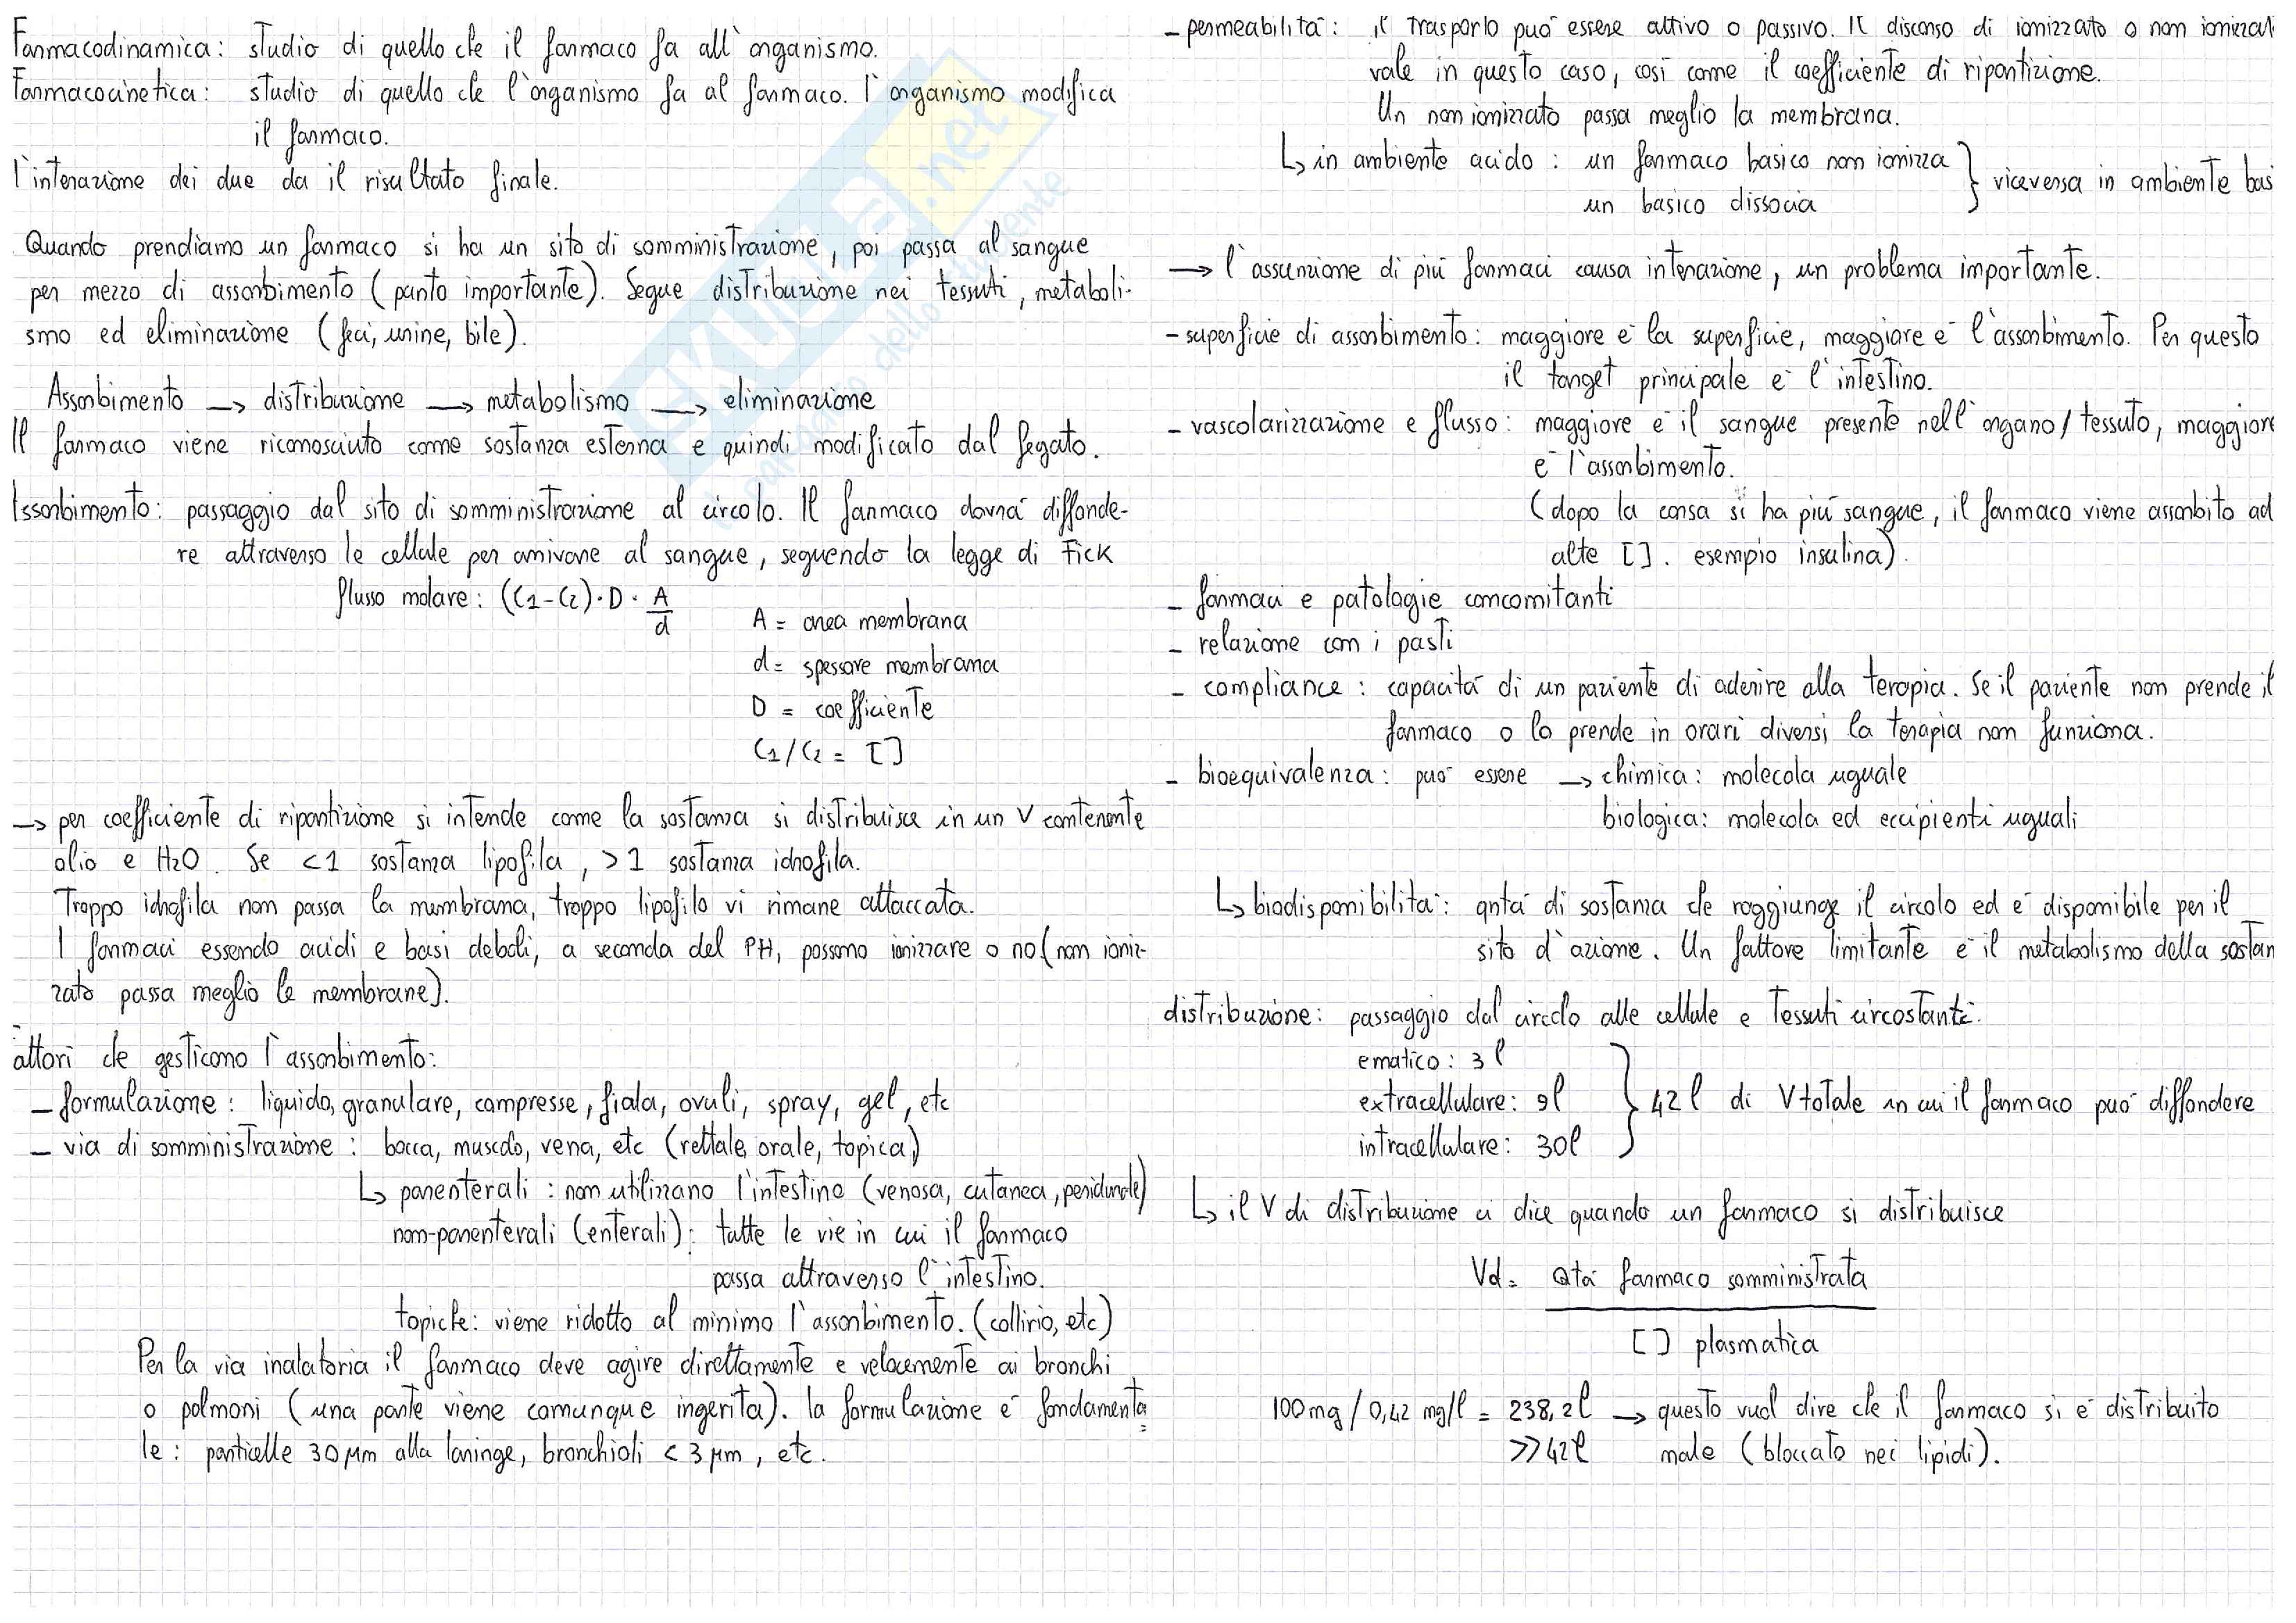 Farmacodinamica: studio di quello che il farmaco fa all'organismo.
Farmacocinetica: studio di quello che l'organismo fa al farmaco. l'organismo modifica
il farmaco.
l'interazione dei due da il risultato finale.
Quando prendiamo un farmaco si ha un sito di somministrazione, poi passa al sangue
per mezzo di assorbimento (punto importante). Segue distribuzione nei tessuti, metaboli-
smo ed eliminazione (feci, urine, bile).
Assorbimento → distribuzione → metabolismo → eliminazione
Il farmaco viene riconosciuto come sostanza esterna e quindi modificato dal fegato.
Assorbimento: passaggio dal sito di somministrazione al circolo. Il farmaco dovrà diffonde-
re attraverso le cellule per arrivare al sangue, seguendo la legge di Fick
flusso molare: (C1-C2)·D·A/d
A = area membrana
d = spessore membrana
D = coefficiente
C1/C2 = []
→ per coefficiente di ripartizione si intende come la sostanza si distribuisce in un V contenente
olio e H2O. Se <1 sostanza lipofila, >1 sostanza idrofila.
Troppo idrofila non passa la membrana, troppo lipofilo vi rimane attaccata.
I farmaci essendo acidi e basi deboli, a seconda del PH, possono ionizzare o no (non ioniz-
zato passa meglio le membrane).
attori che gestiscono l'assorbimento:
- formulazione: liquido, granulare, compresse, fiala, ovuli, spray, gel, etc
- via di somministrazione: bocca, muscolo, vena, etc (rettale, orale, topica,)
↳ parenterali: non utilizzano l'intestino (venosa, cutanea, peridurale)
non-parenterali (enterali): tutte le vie in cui il farmaco
passa attraverso l'intestino.
topiche: viene ridotto al minimo l'assorbimento. (collirio, etc)
Per la via inalatoria il farmaco deve agire direttamente e velocemente ai bronchi
o polmoni (una parte viene comunque ingerita). la formulazione è fondamenta=
le: particelle 30 µm alla laringe, bronchioli < 3 µm, etc.
- permeabilità: il trasporto può essere attivo o passivo. Il discorso di ionizzato o non ionizzat
vale in questo caso, così come il coefficiente di ripartizione.
Un non ionizzato passa meglio la membrana.
↳ in ambiente acido: un farmaco basico non ionizza
un basico dissocia
} viceversa in ambiente bas
→ l'assunzione di più farmaci causa interazione, un problema importante.
- superficie di assorbimento: maggiore è la superficie, maggiore è l'assorbimento. Per questo
il target principale è l'intestino.
- vascolarizzazione e flusso: maggiore è il sangue presente nell'organo/tessuto, maggiore
è l'assorbimento.
(dopo la corsa si ha più sangue, il farmaco viene assorbito ad
alte []. esempio insulina).
- farmaci e patologie concomitanti
- relazione con i pasti
- compliance: capacità di un paziente di aderire alla terapia. Se il paziente non prende il
farmaco o lo prende in orari diversi la terapia non funziona.
- bioequivalenza: può essere → chimica: molecola uguale
biologica: molecola ed eccipienti uguali
↳ biodisponibilità: qntà di sostanza che raggiunge il circolo ed è disponibile per il
sito d'azione. Un fattore limitante è il metabolismo della sostan
distribuzione: passaggio dal circolo alle cellule e tessuti circostanti.
ematico: 3 l
extracellulare: 9l
intracellulare: 30l
} 42 l di V totale in cui il farmaco può diffondere
↳ il V di distribuzione ci dice quando un farmaco si distribuisce
Vd = Qtà farmaco somministrata
[] plasmatica
100 mg / 0,42 mg/l = 238,2l → questo vuol dire che il farmaco si è distribuito
>>42l male (bloccato nei lipidi).
SKUOLA.net